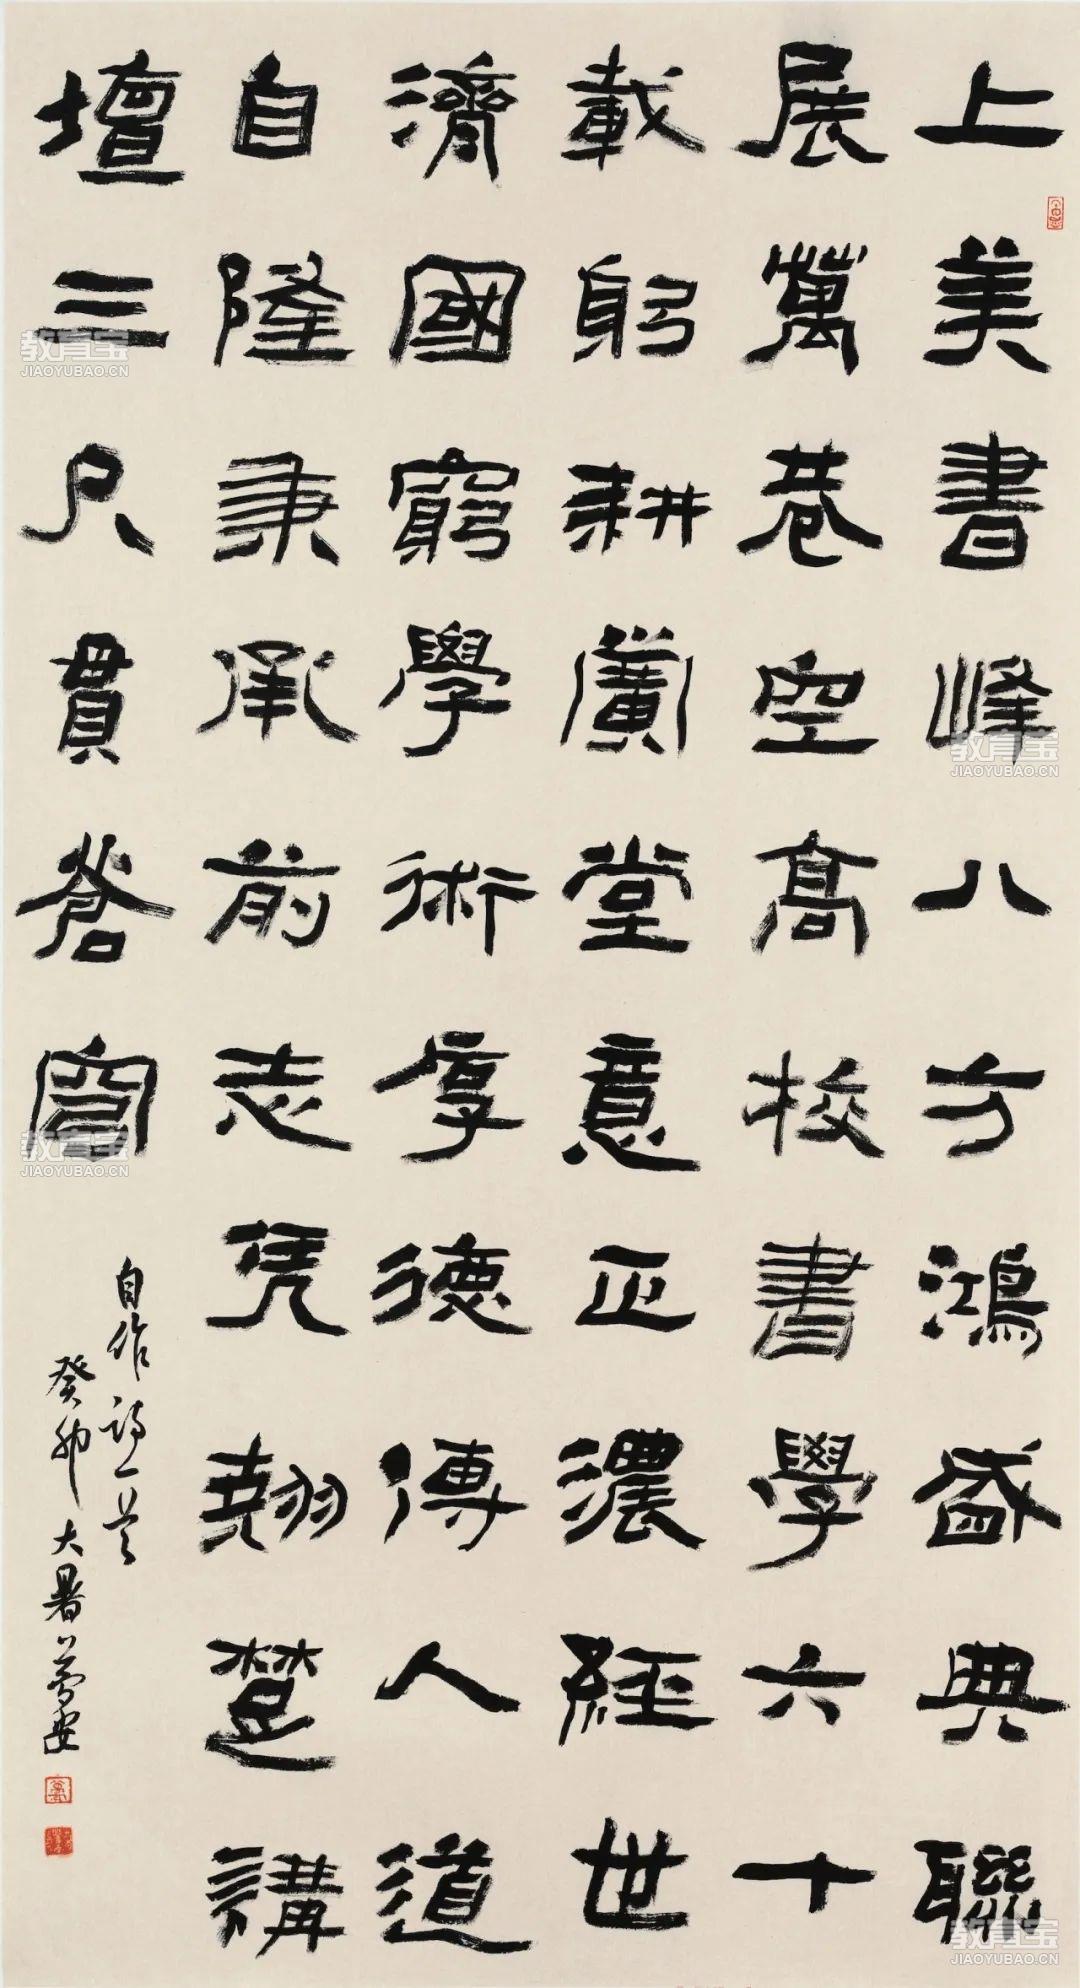 上美書峰八方鴻盛典聯
展萬巷空高校書學六十
載躬耕廣堂意正濃經世
濟國窮學術厚德傳人道
自隆秉承前志凭翹楚講
壇三尺貫蒼穹
自作詩一首
癸卯大暑
教育宝
JIAOYUBAO.CN
教育宝
JIAOYUBAO.CN
教育宝
JIAOYUBAO.CN
教育宝
JIAOYUBAO.CN